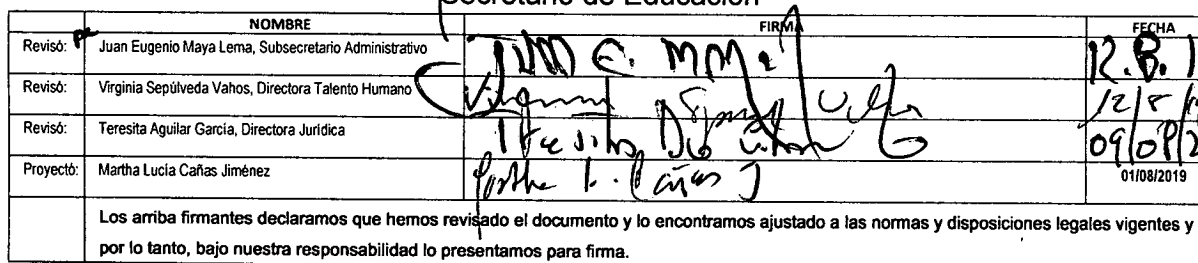 Secretario de Educación
NOMBRE FIRMA FECHA
Revisó: Juan Eugenio Maya Lema, Subsecretario Administrativo
Revisó: Virginia Sepúlveda Vahos, Directora Talento Humano
Revisó: Teresita Aguilar García, Directora Jurídica
Proyectó: Martha Lucía Cañas Jiménez 01/08/2019
Los arriba firmantes declaramos que hemos revisado el documento y lo encontramos ajustado a las normas y disposiciones legales vigentes y
por lo tanto, bajo nuestra responsabilidad lo presentamos para firma.